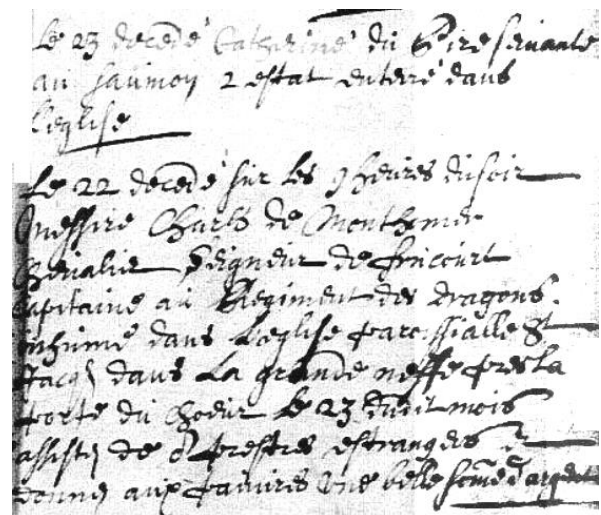 Le 23 decedé Catharine du Sire servante
au saumon 2 estat enterré dans
l'eglise
Le 22 decedé sur les 9 heures du soir
Messire Charls de Monthimer
Chevalier Seigneur de fincourt
Capitaine au Regiment des dragons.
inhumé dans l'eglise paroissialle St
Jacq dans La grande neffe pres La
porte du Choeur Le 23 dudit mois
assisté de prestres estrangers
donné aux pauvres une belle some d'argent